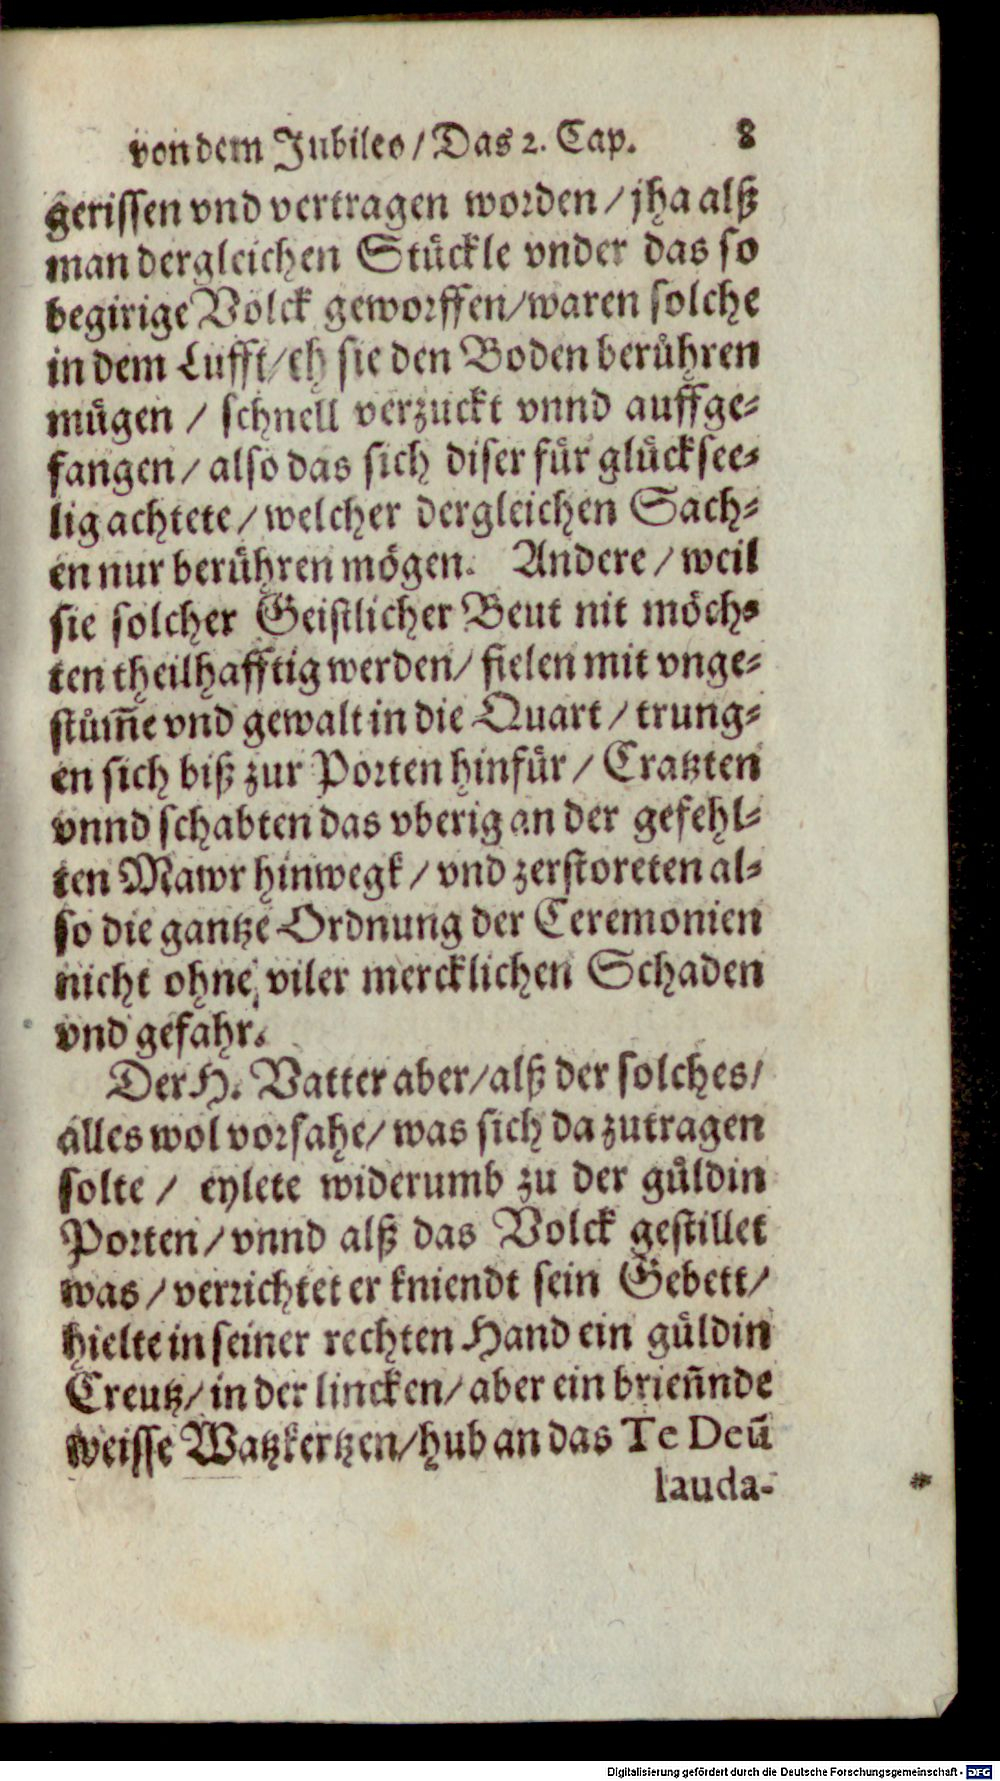 von dem Jubileo / Das 2. Cap. 8
gerissen vnd vertragen worden / jha alß
man dergleichen Stückle vnder das so
begirige Volck geworffen / waren solche
in dem Lufft / eh sie den Boden berühren
mügen / schnell verzuckt vnnd auffge-
fangen / also das sich diser für glücksee-
lig achtete / welcher dergleichen Sach-
en nur berühren mögen. Andere / weil
sie solcher Geistlicher Beut nit möch-
ten theilhafftig werden / fielen mit vnge-
stüm̃e vnd gewalt in die Quart / trung-
en sich biß zur Porten hinfür / Cratzten
vnnd schabten das vberig an der gefehl-
ten Mawr hinwegk / vnd zerstoreten al-
so die gantze Ordnung der Ceremonien
nicht ohne viler mercklichen Schaden
vnd gefahr.
Der H. Vatter aber / alß der solches /
alles wol vorsahe / was sich da zutragen
solte / eylete widerumb zu der güldin
Porten / vnnd alß das Volck gestillet
was / verrichtet er kniendt sein Gebett /
hielte in seiner rechten Hand ein güldin
Creutz / in der lincken / aber ein brieñnde
weisse Watzkertzen / hub an das Te Deū
lauda-
Digitalisierung gefördert durch die Deutsche Forschungsgemeinschaft - DFG